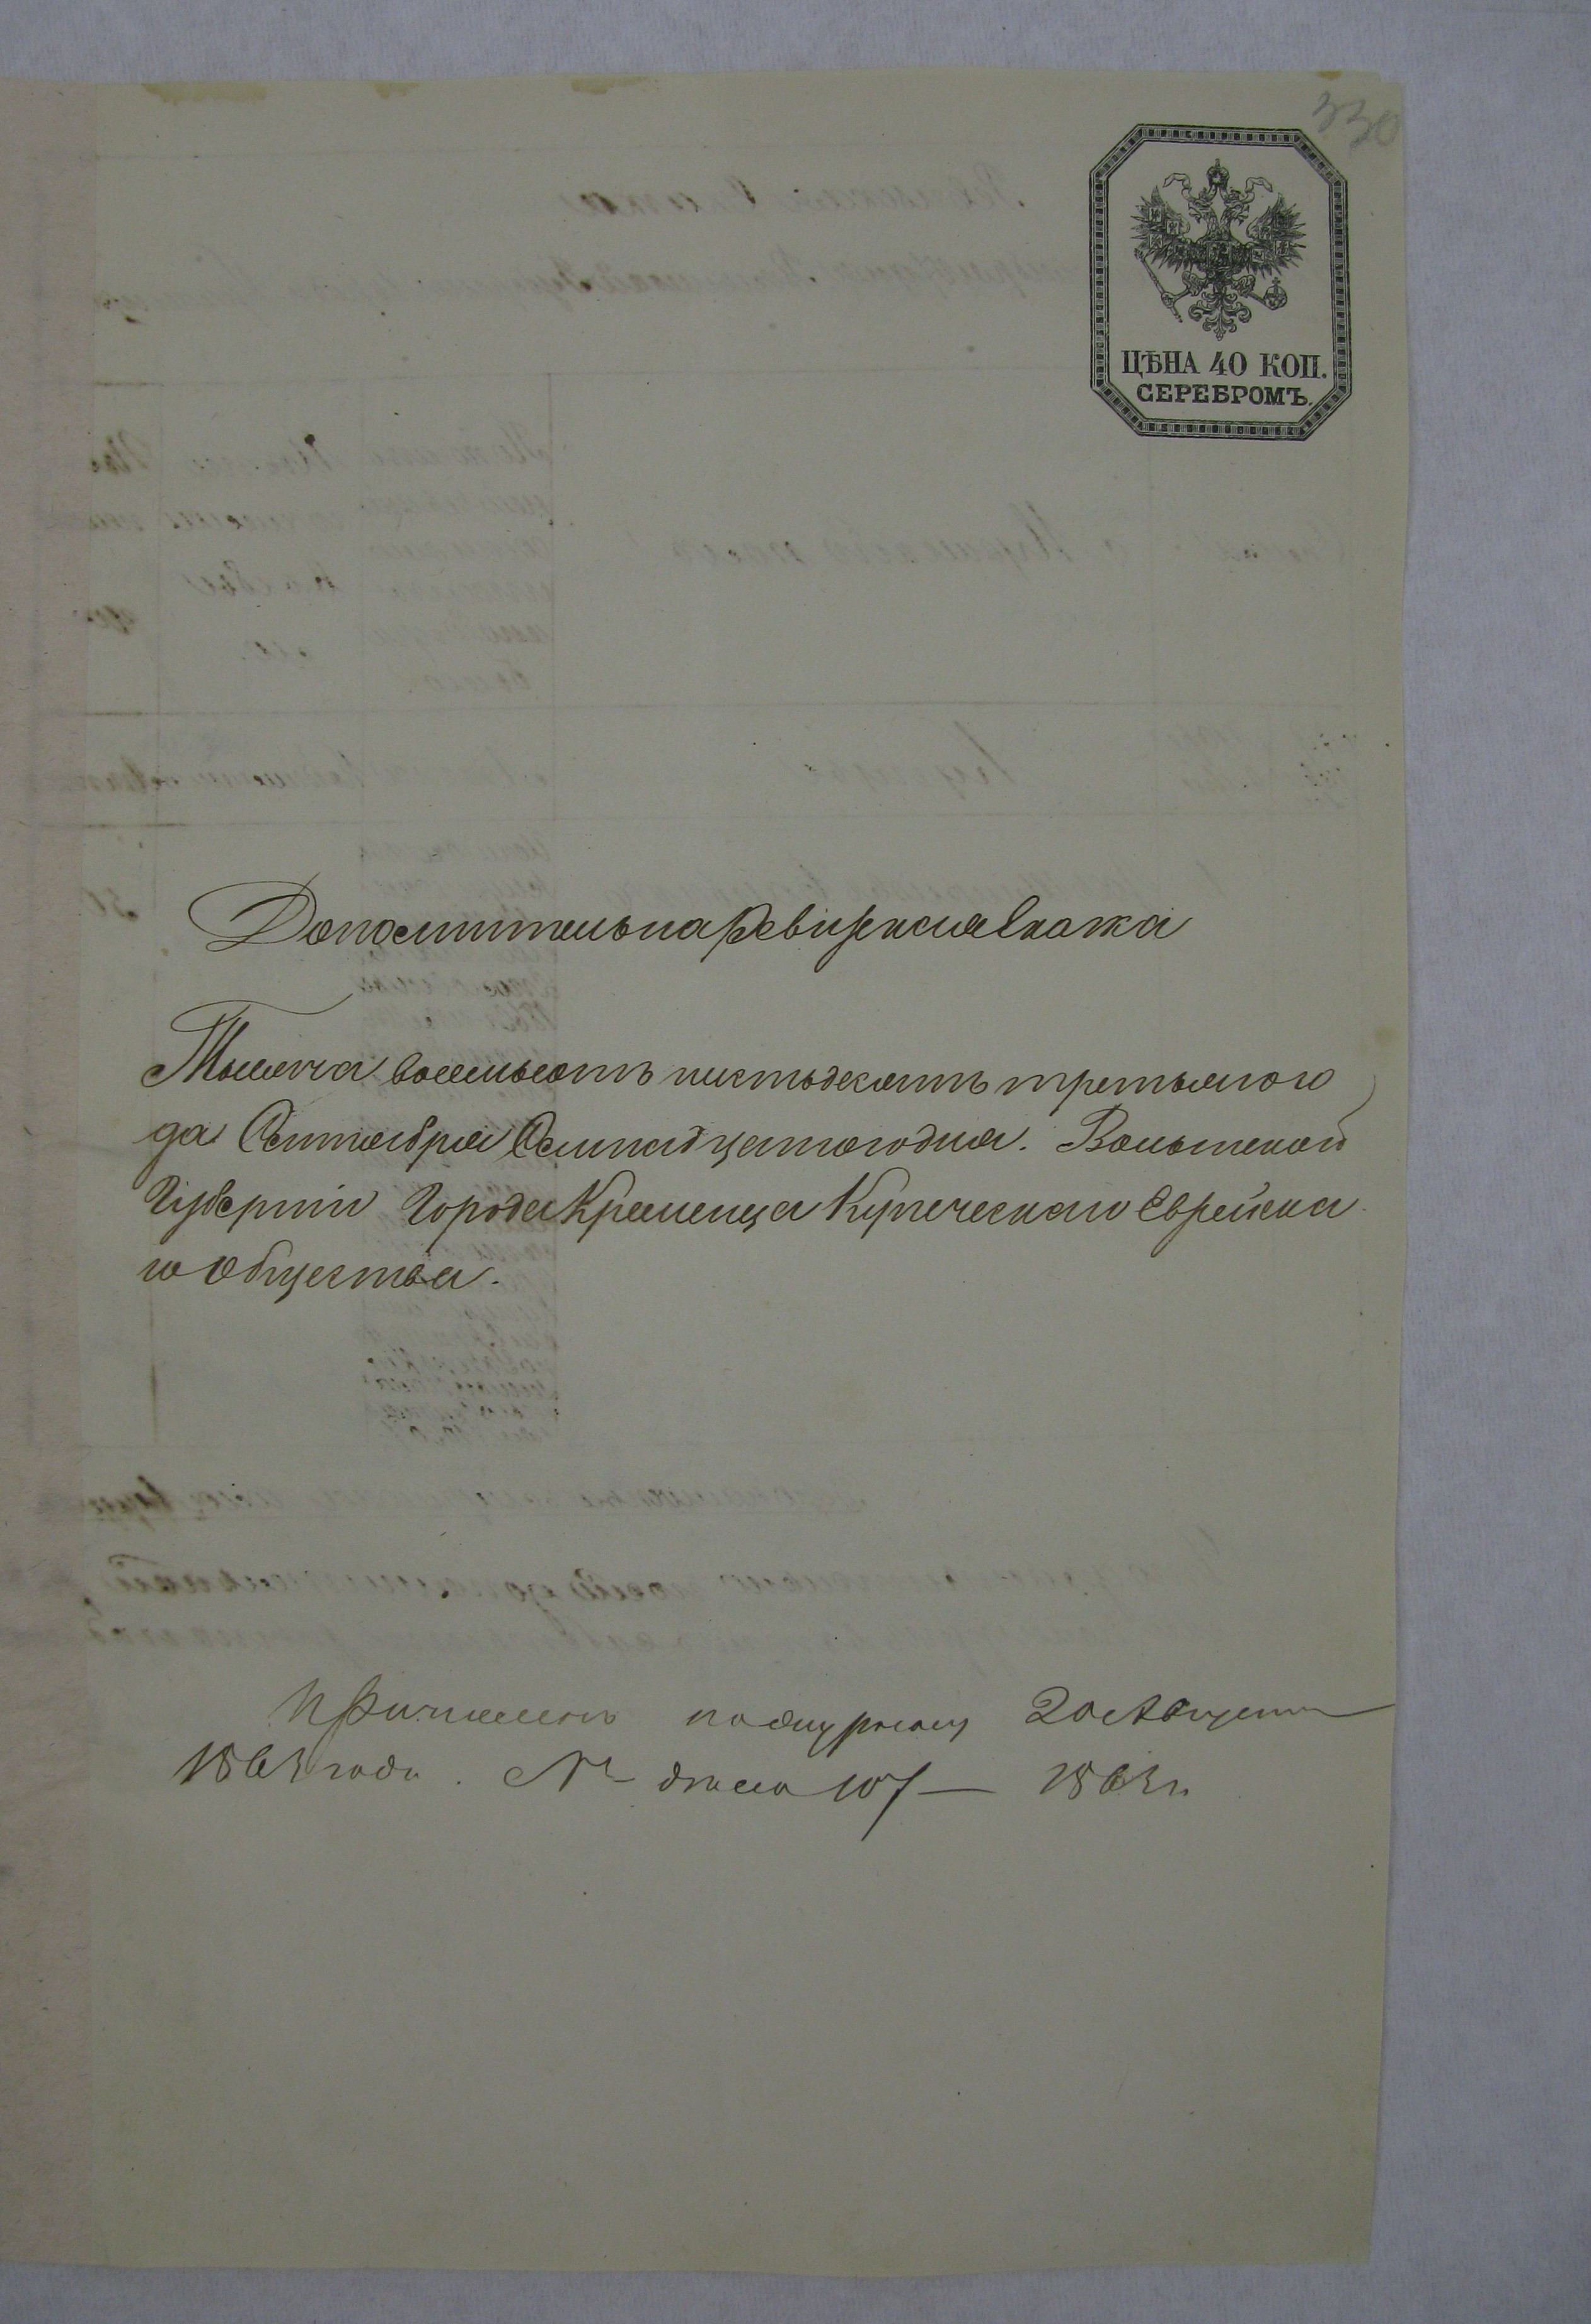 330
ЦѢНА 40 КОП.
СЕРЕБРОМЪ.
Дополнительна Ревизская Скажка
Тысеча восемьсотъ шестьдесятъ третьяго го
да Сентября Семнадцатого дня. Волынской
Губерніи Города Кременца Купеческаго Еврейска
го Общества.
Причисленъ по журналу 20 Августа
1863 года. № дела 107 — 1863 г.